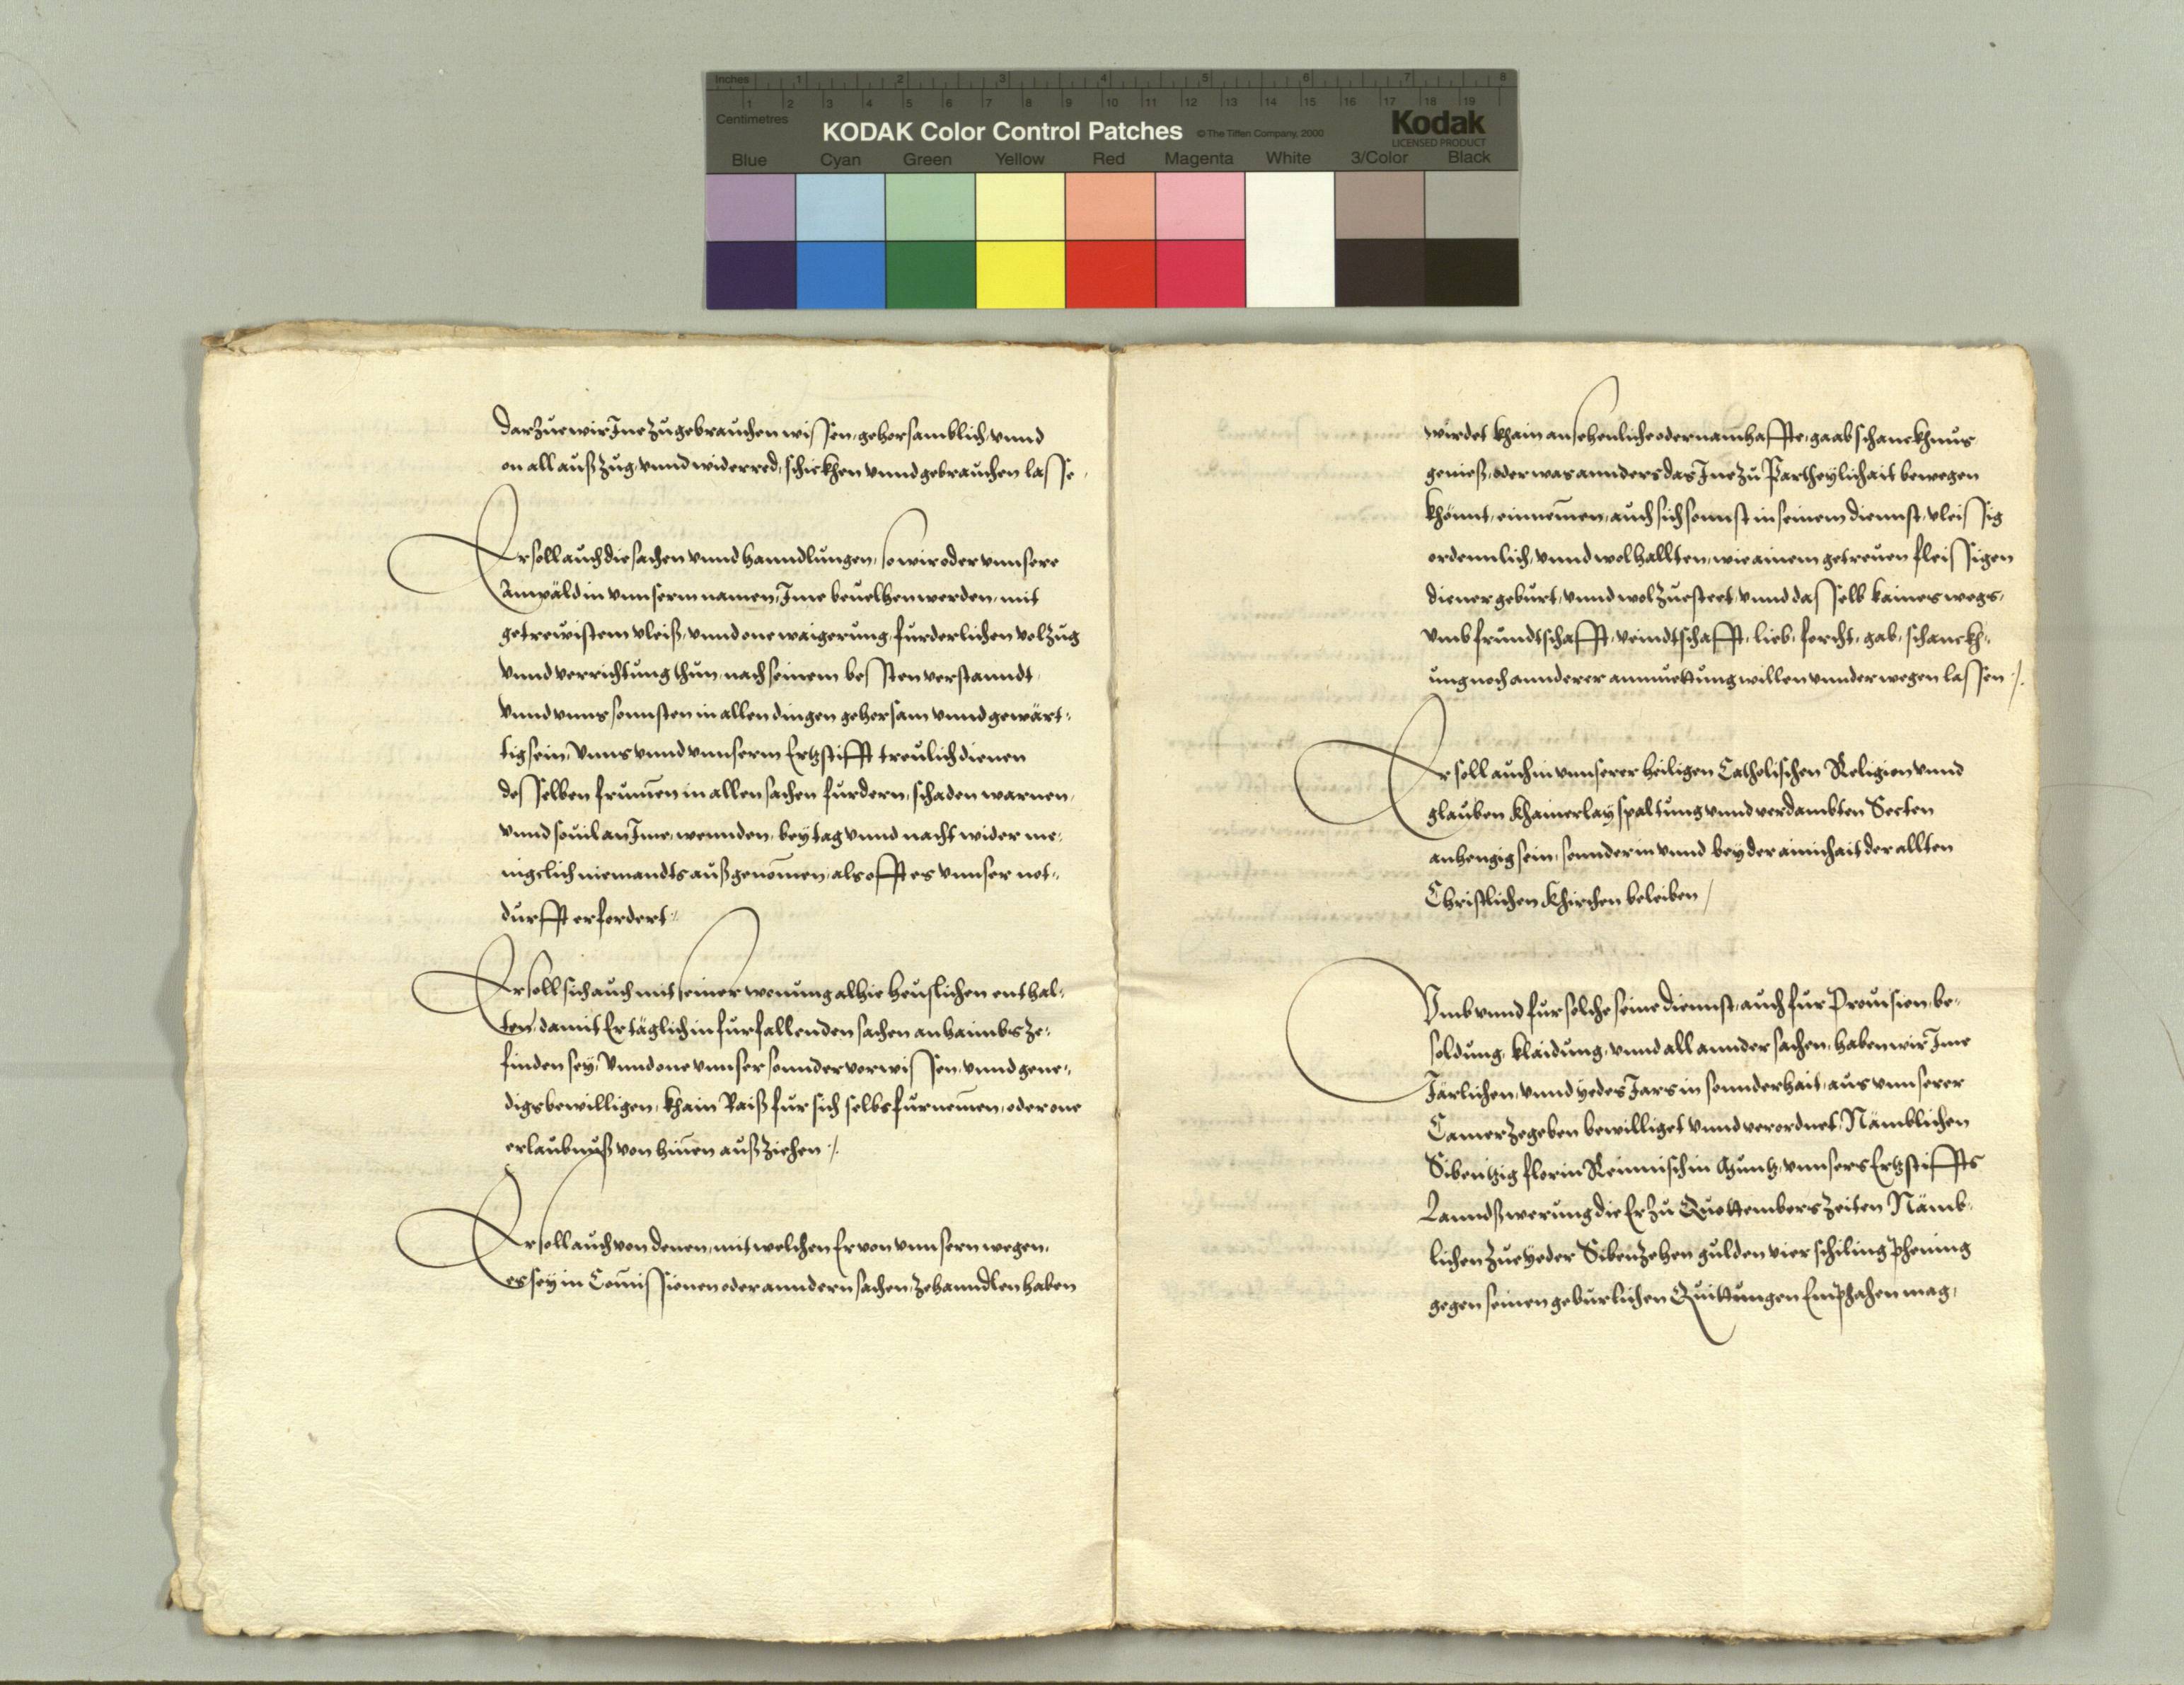 Inches 1 2 3 4 5 6 7 8
1 2 3 4 5 6 7 8 9 10 11 12 13 14 15 16 17 18 19
Centimetres
KODAK Color Control Patches © The Tiffen Company, 2000 Kodak
LICENSED PRODUCT
Blue Cyan Green Yellow Red Magenta White 3/Color Black
darzue wir Ine zugebrauchen wissen, gehorsamblich, vnnd
on all außzug, vnnd widerred, schickhen vnnd gebrauchen lasse,
Er soll auch die sachen vnnd hanndlungen, so wir oder vnnsere
Anwäld in vnnserm namen, Ime beuelhen werden, mit
getrewistem vleiß, vnnd one waigerung, furderlichen volzug
vnnd verrichtung thun, nach seinem besten verstanndt,
vnnd vnns sonnsten in allen dingen gehorsam vnnd gewärt-
tig sein, Vnns vnnd vnnserm Ertzstifft treulich dienen
desselben frumen in allen sachen furdern, schaden warnen,
vnnd souil an Ime, wennden, bey tag vnnd nacht wider me-
nigclich niemandts außgenomen, als offt es vnnser not-
durfft erfordert
Er soll sich auch mit seiner wonung alhie heuslichen enthal-
ten, damit Er täglich in furfallenden sachen anhaimbs ze-
finden sey, Vnnd one vnnser sonnder vorwissen, vnnd gene-
digs bewilligen, khain Raiß fur sich selbs furnemen, oder one
erlaubnuß von hinen außziehen /.
Er soll auch von denen, mit welchen Er von vnnsern wegen,
es sey in Comissionen oder anndern sachen, zehanndlen haben
wirdet khain ansehenliche oder namhaffte, gaab schanckhnus
genieß, oder was annders das Ine zu Partheylichait bewegen
khönnt, einnemen, auch sich sonnst in seinem diennst, vleissig
ordennlich, vnnd wol hallten, wie ainem getreuen fleissigen
diener geburt, vnnd wol zuesteet, vnnd dasselb kaines wegs,
vmb frundtschafft, veindtschafft, lieb, forcht, gab, schanckh-
ung noch annderer anmuettung willen vnnderwegen lassen /.
Er soll auch in vnnserer heiligen Catholischen Religion vnnd
glauben khainerlay spaltung vnnd verdambten Secten
anhengig sein, sonnder in vnnd bey der ainichait der allten
Christlichen Khirchen beleiben /
Vmb vnnd fur solche seine diennst, auch fur Prouision, be-
soldung, klaidung, vnnd all annder sachen, haben wir Ime
Järlichen, vnnd yedes Jars in sonnderhait, aus vnnserer
Camer zegeben bewilliget vnnd verordnet, Nämblichen
Sibentzig florin Reinnisch in Muntz, vnnsers Ertzstiffts
Lanndßwerung die Er zu Quottembers zeiten Nämb-
lichen zue yeder Sibenzehen gulden vier schiling phening
gegen seinen geburlichen Quittungen Emphahen mag,